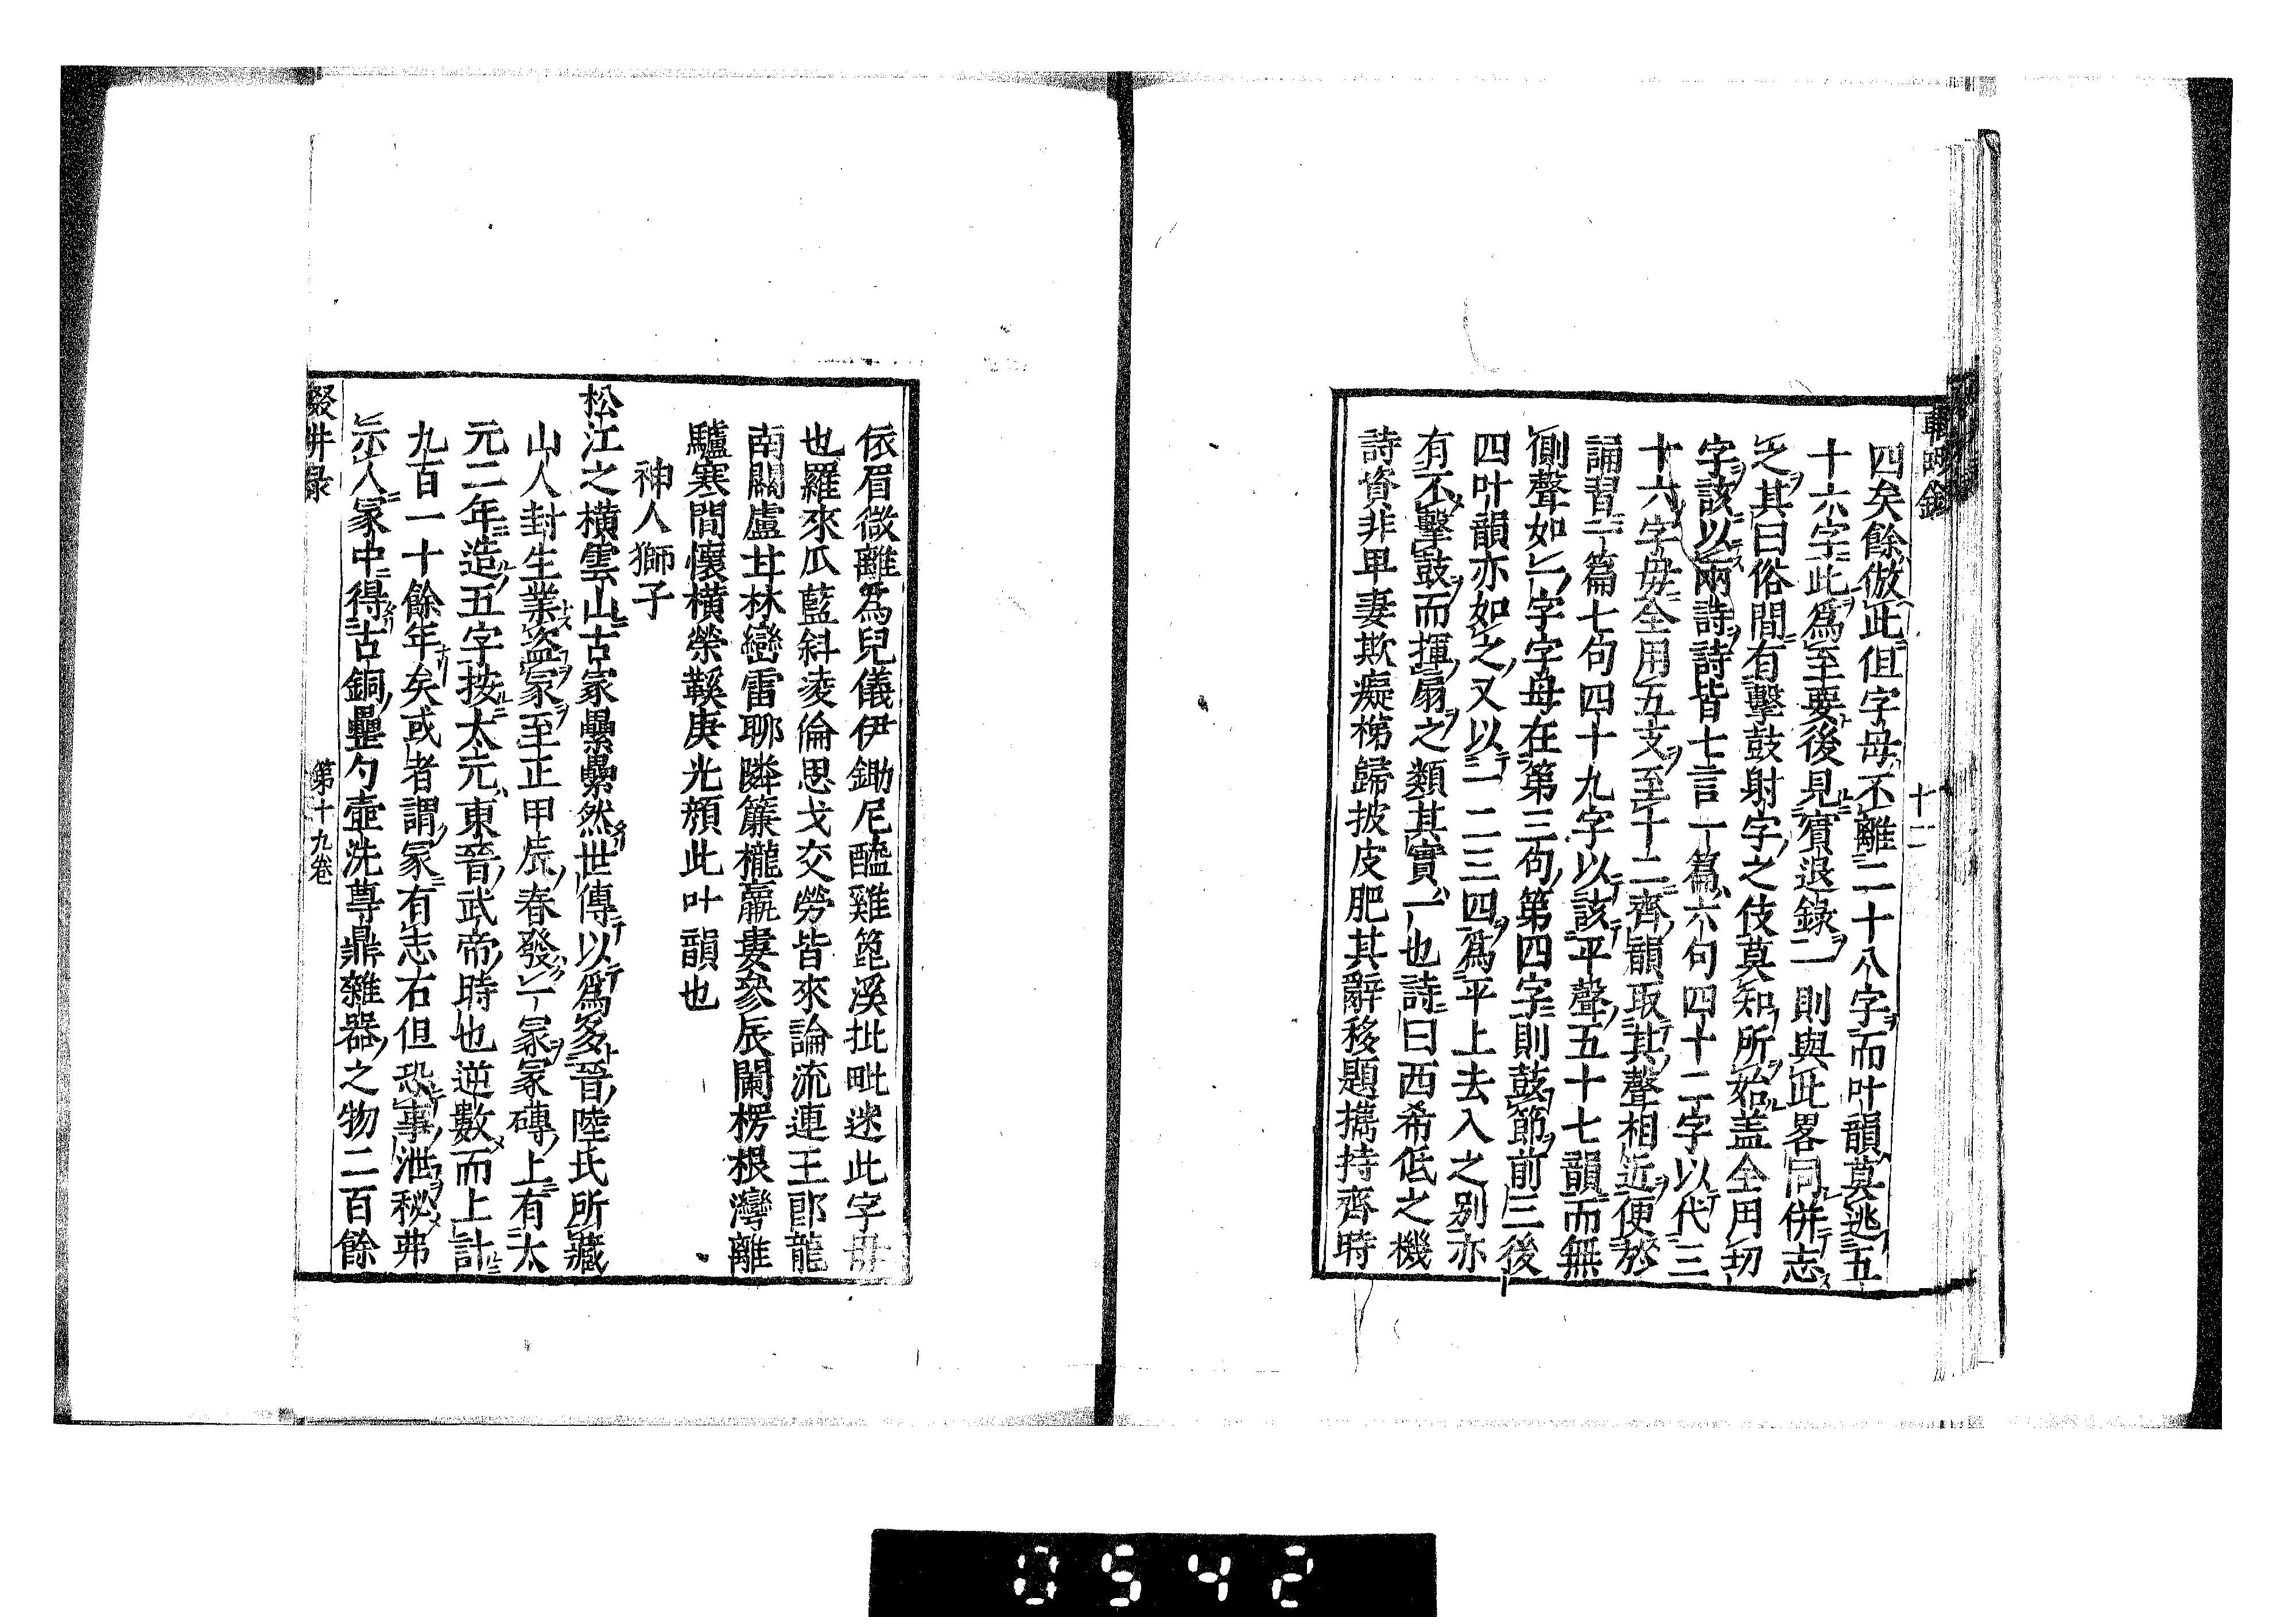 十二
四矣餘倣此但字母不離二十八字而叶韻莫逃五
十六字此爲至要後見賓退錄一則與此畧同併志
之其曰俗間有擊鼓射字之伎莫知所始盖全用切
字該以兩詩詩皆七言一篇六句四十二字以代三
十六字母全用五支至十二齊韻取其聲相近便於
誦習一篇七句四十九字以該平聲五十七韻而無
側聲如一字字母在第三句第四字則鼓節前三後
四叶韻亦如之又以一二三四爲平上去入之別亦
有不擊鼓而揮扇之類其實一也詩曰西希低之機
詩資非卑妻欺癡梯歸披皮肥其辭移題攜持齊時
依眉微離爲兒儀伊鋤尼醯雞篦溪批毗迷此字母
也羅來瓜藍斜凌倫思戈交勞皆來論流連王郎龍
南關盧甘林巒雷聊隣簾櫳羸婁參辰闌楞根灣離
驢寒間懷橫榮鞵庚光顏此叶韻也
神人獅子
松江之橫雲山古冢纍纍然世傳以爲多晉陸氏所藏
山人封生業盜冢至正甲辰春發一冢冢磚上有太
元二年造五字按太元東晉武帝時也逆數而上計
九百一十餘年矣或者謂冢有志石但恐事泄秘弗
示人冢中得古銅罍勺壺洗尊鼎雜器之物二百餘
輟畊录
第十九卷
0542